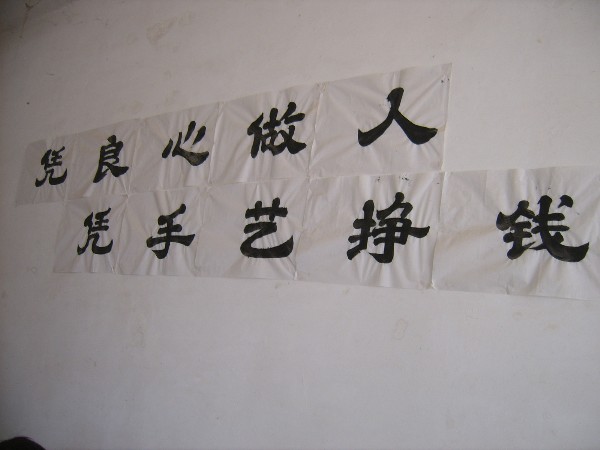 凭良心做人
凭手艺挣钱